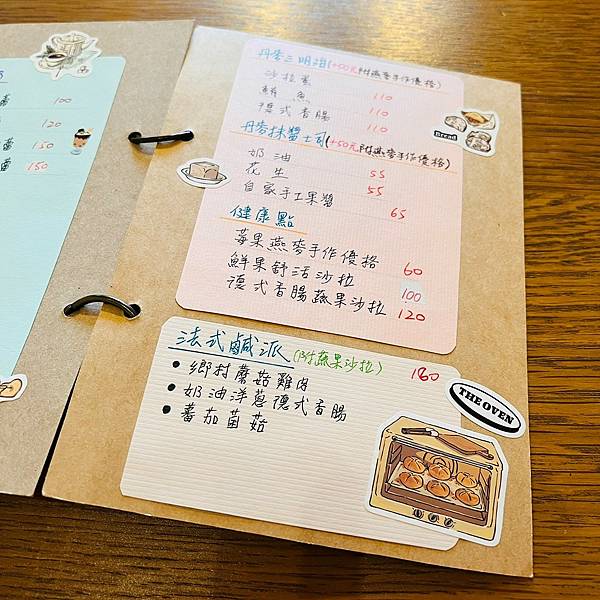 100
120
150
150
丹麥三明治(+50元附燕麥手作優格)
沙拉蛋 110
鮪魚 110
德式香腸 110
丹麥抹醬土司(+50元附燕麥手作優格)
奶油 55
花生 55
自家手工果醬 65
健康點
莓果燕麥手作優格 60
鮮果舒活沙拉 100
德式香腸蔬果沙拉 120
法式鹹派(附蔬果沙拉) 180
• 鄉村蘑菇雞肉
• 奶油洋蔥德式香腸
• 蕃茄菌菇
Bread
THE OVEN